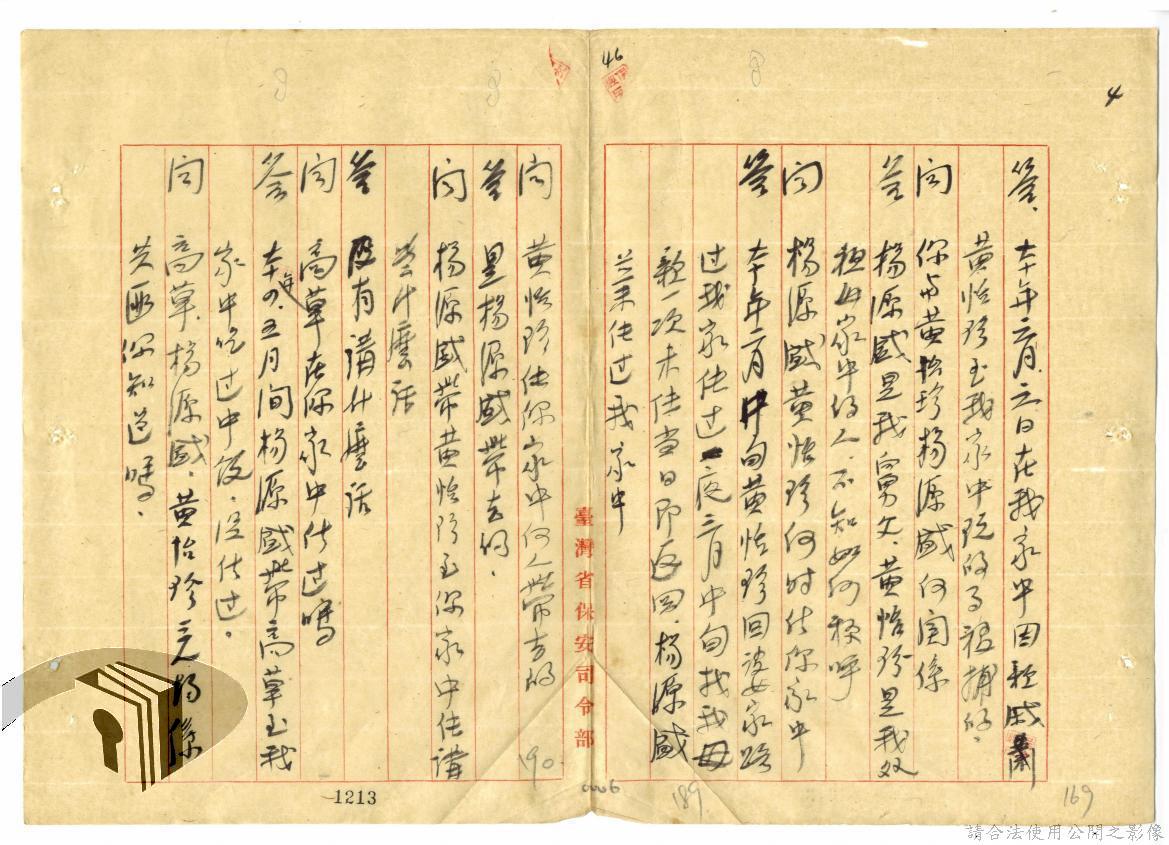 46
4
答、本年六月六日在我家中因親戚
黃怡珍至我家中玩的而被捕的。
問 你与黃怡珍楊源盛何関係
答 楊源盛是我舅父、黃怡珍是我
母家中的人、不知如何称呼
問 楊源盛黃怡珍何时住你家中
答 本年二月中旬黃怡珍回婆家路
过我家住过一夜三月中旬找我母
親一次未住当日即返回、楊源盛
並未住过我家中
問 黃怡珍住你家中何人帶去的
答 是楊源盛帶去的、
問 楊源盛帶黃怡珍至你家中住講
些什麼話
答 沒有講什麼話
問 高草在你家中住过嗎
答 本年四、五月間楊源盛帶高草至我
家中吃过中飯、沒住过。
問 高草、楊源盛、黃怡珍三人均係
共匪你知道嗎、
臺灣省保安司令部
190
1213
0006
189
169
請合法使用公開之影像